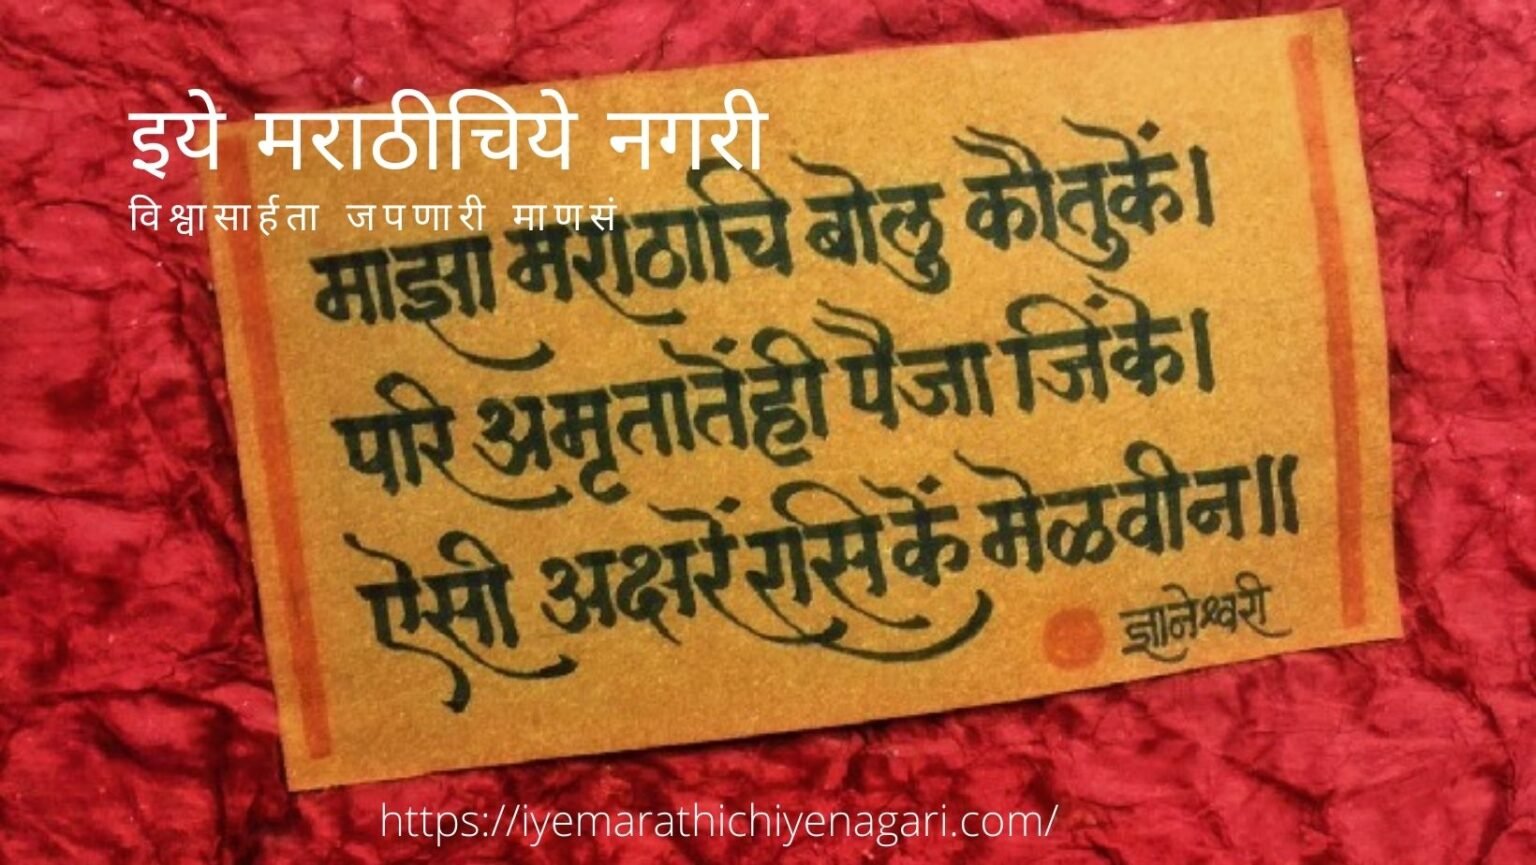 इये मराठीचिये नगरी
विश्वासार्हता जपणारी माणसं
माझा मराठाचि बोलु कौतुकें।
परि अमृतातेंही पैजा जिंके।
ऐसी अक्षरें रसिकें मेळवीन॥
ज्ञानेश्वरी
https://iyemarathichiyenagari.com/